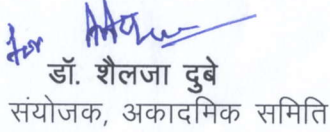 for
डॉ. शैलजा दुबे
संयोजक, अकादमिक समिति